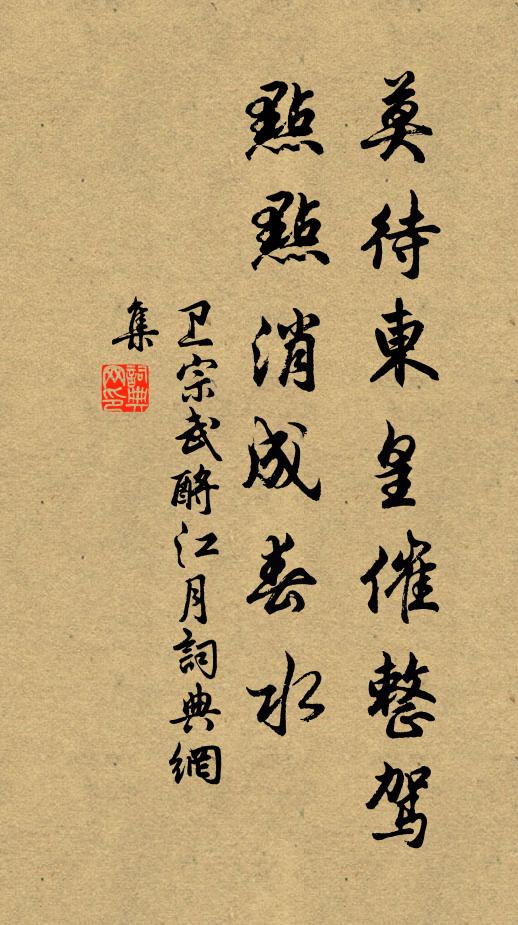 莫待東皇催整駕
點點消成春水
卫宗武酹江月詞典網
集
詞典
网印